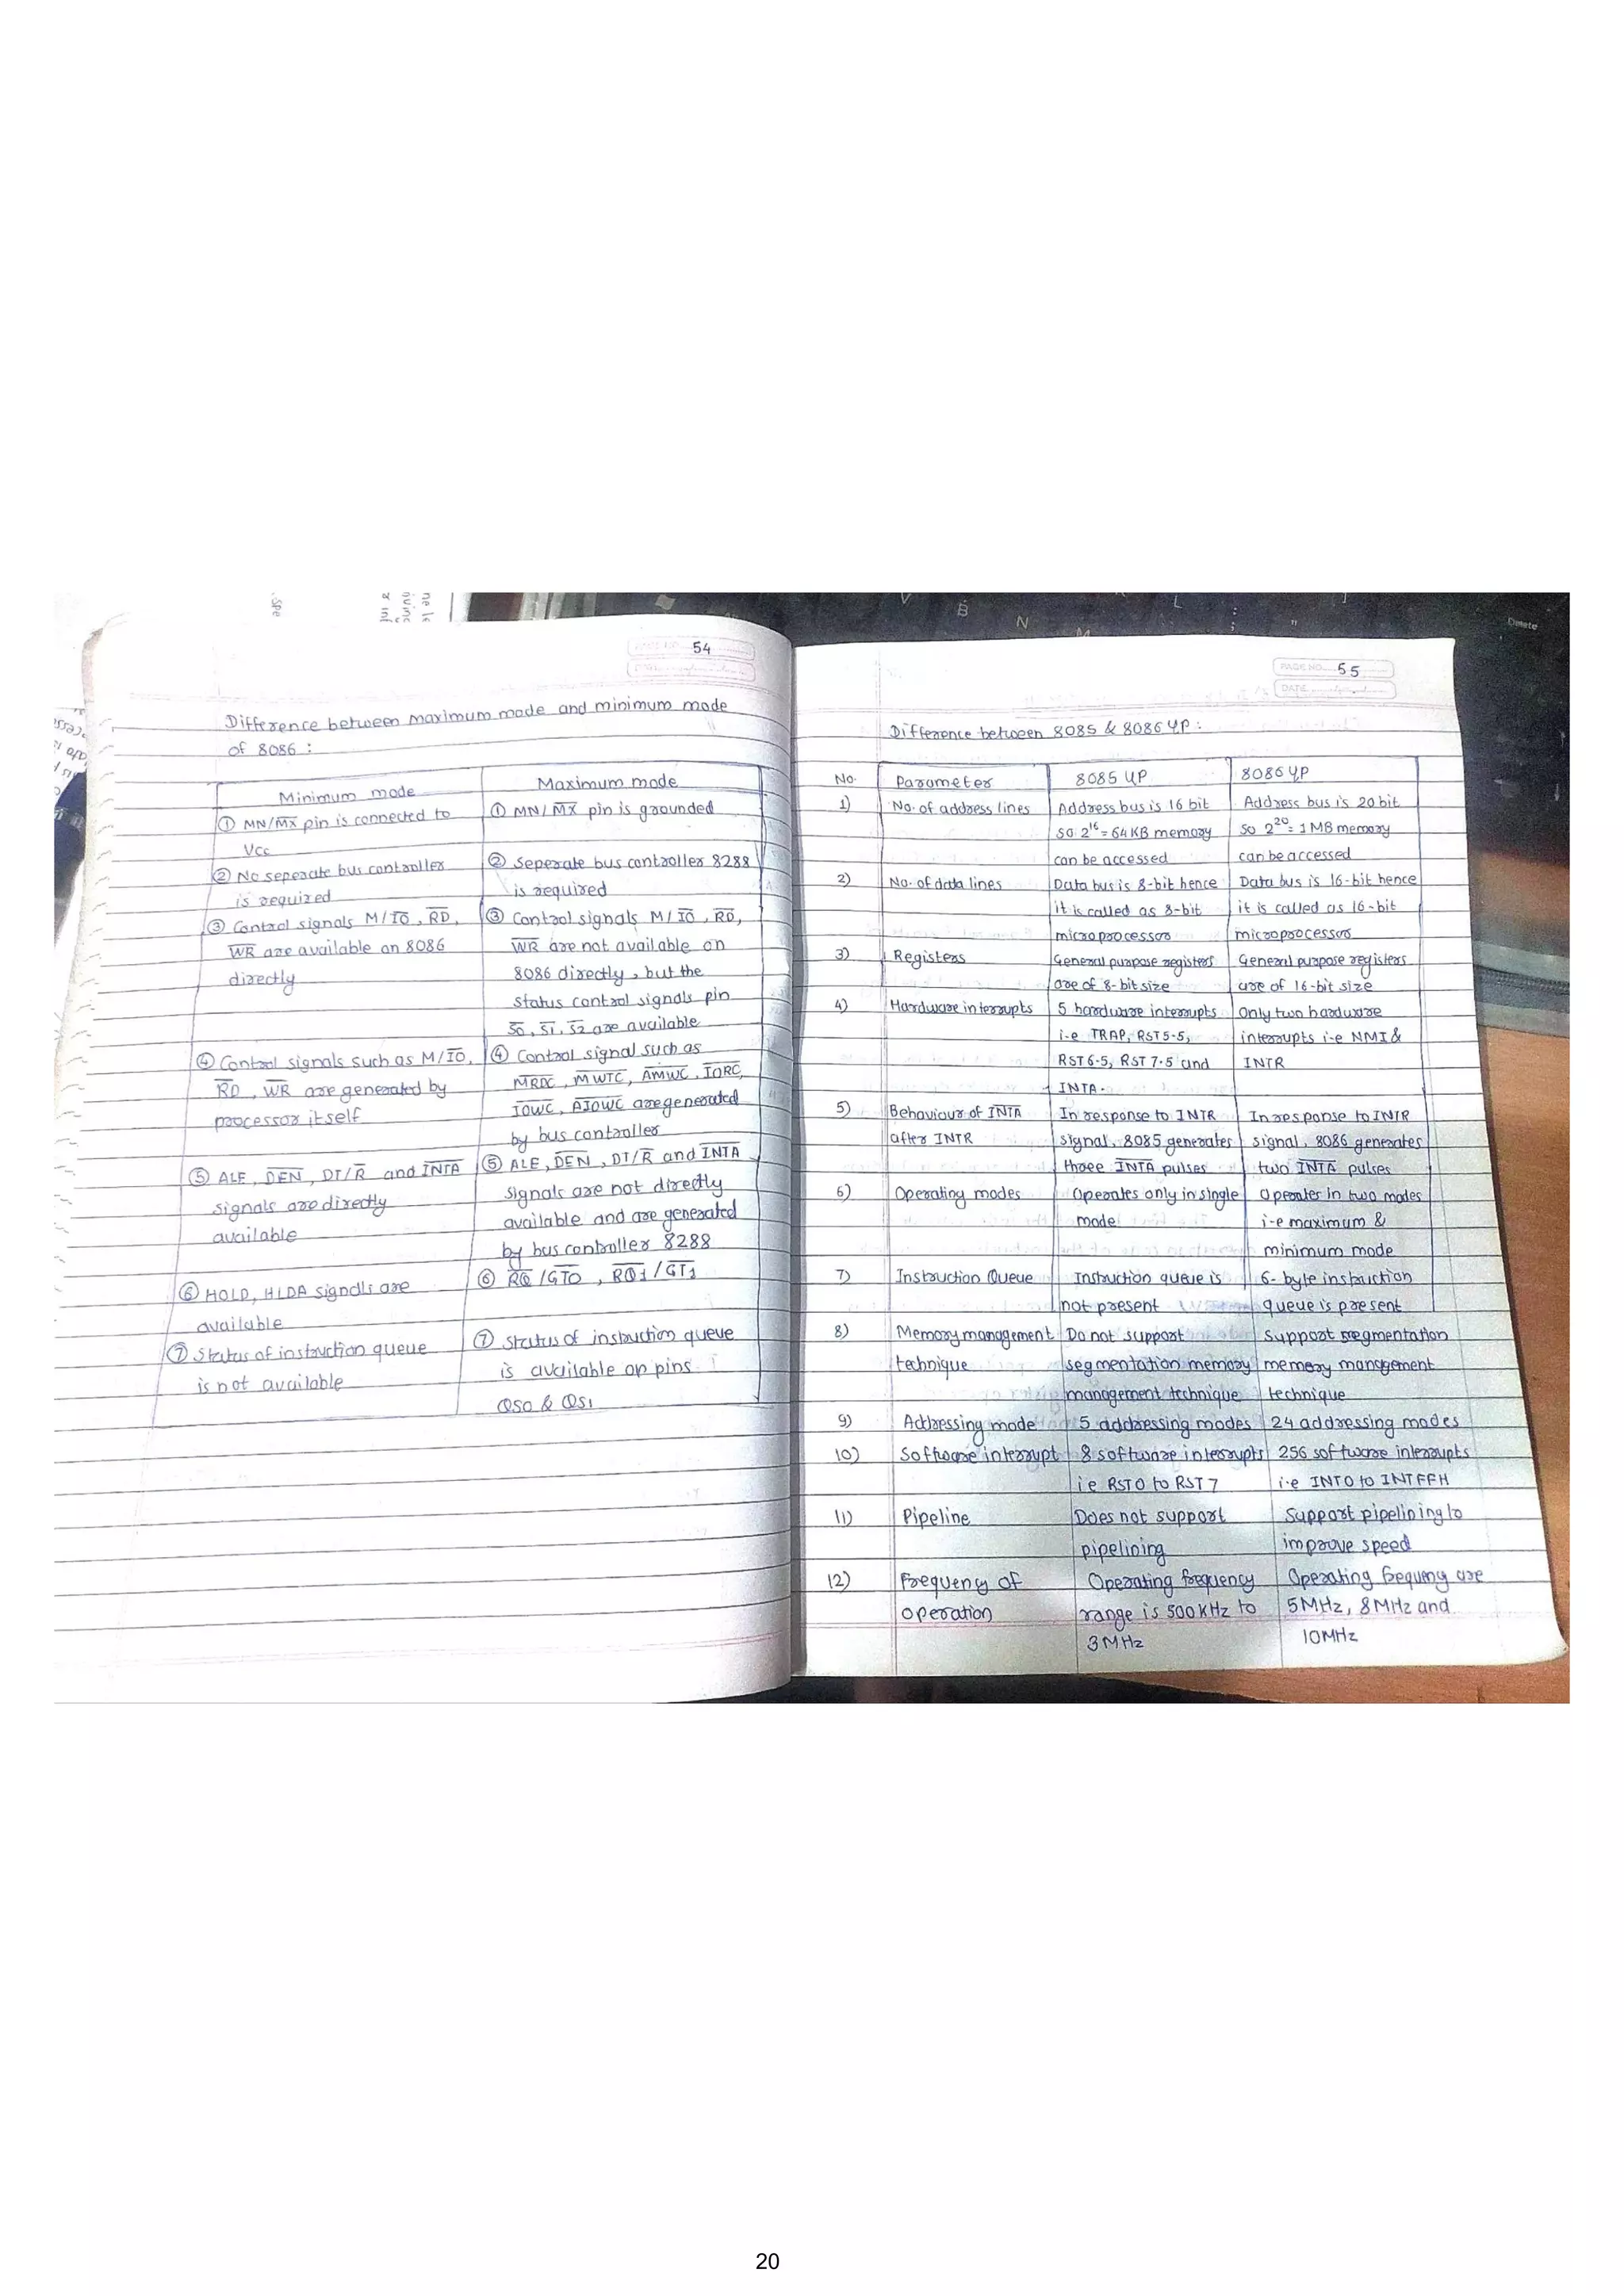 54
Difference between maximum mode and minimum mode
of 8086 :
Minimum mode
① MN/M̅X̅ pin is connected to
Vcc
② No seperate bus controller
is required
③ Control signals M/I̅O̅, R̅D̅,
W̅R̅ are available on 8086
directly
④ Control signals such as M/I̅O̅,
R̅D̅, W̅R̅ are generated by
processor itself
⑤ ALE, D̅E̅N̅, DT/R̅ and I̅N̅T̅A̅
signals are directly
available
⑥ HOLD, HLDA signals are
available
⑦ Status of instruction queue
is not available
Maximum mode
① MN/M̅X̅ pin is grounded
② Seperate bus controller 8288
is required
③ Control signals M/I̅O̅, R̅D̅,
W̅R̅ are not available on
8086 directly, but the
status control signals pin
S̅0̅, S̅1̅, S̅2̅ are available
④ Control signal such as
M̅R̅D̅C̅, M̅W̅T̅C̅, A̅M̅W̅C̅, I̅O̅R̅C̅,
I̅O̅W̅C̅, A̅I̅O̅W̅C̅ are generated
by bus controller
⑤ ALE, D̅E̅N̅, DT/R̅ and I̅N̅T̅A̅
signals are not directly
available and are generated
by bus controller 8288
⑥ R̅Q̅/G̅T̅0̅, R̅Q̅1̅/G̅T̅1̅
⑦ Status of instruction queue
is available on pins
QS0 & QS1
PAGE NO. 55
DATE
Difference between 8085 & 8086 μP :
No. Parameter 8085 μP 8086 μP
1) No. of address lines Address bus is 16 bit Address bus is 20 bit
so 2^16 = 64 KB memory so 2^20 = 1 MB memory
can be accessed can be accessed
2) No. of data lines Data bus is 8-bit hence Data bus is 16-bit hence
it is called as 8-bit it is called as 16-bit
microprocessor microprocessor
3) Registers General purpose registers General purpose registers
are of 8-bit size are of 16-bit size
4) Hardware interrupts 5 hardware interrupts Only two hardware
i.e TRAP, RST 5.5, interrupts i.e NMI &
RST 6.5, RST 7.5 and INTR
INTA.
5) Behaviour of I̅N̅T̅A̅ In response to INTR In response to INTR
after INTR signal, 8085 generates signal, 8086 generates
three I̅N̅T̅A̅ pulses two I̅N̅T̅A̅ pulses
6) Operating modes Operates only in single Operates in two modes
mode i.e maximum &
minimum mode
7) Instruction Queue Instruction queue is 6-byte instruction
not present queue is present
8) Memory management Do not support Support segmentation
technique segmentation memory memory management
management technique technique
9) Addressing mode 5 addressing modes 24 addressing modes
10) Software interrupt 8 software interrupts 256 software interrupts
i.e RST0 to RST7 i.e INT0 to INTFFH
11) Pipeline Does not support Support pipelining to
pipelining improve speed
12) Frequency of Operating frequency Operating frequency are
operation range is 500 kHz to 5MHz, 8MHz and
3MHz 10MHz
20